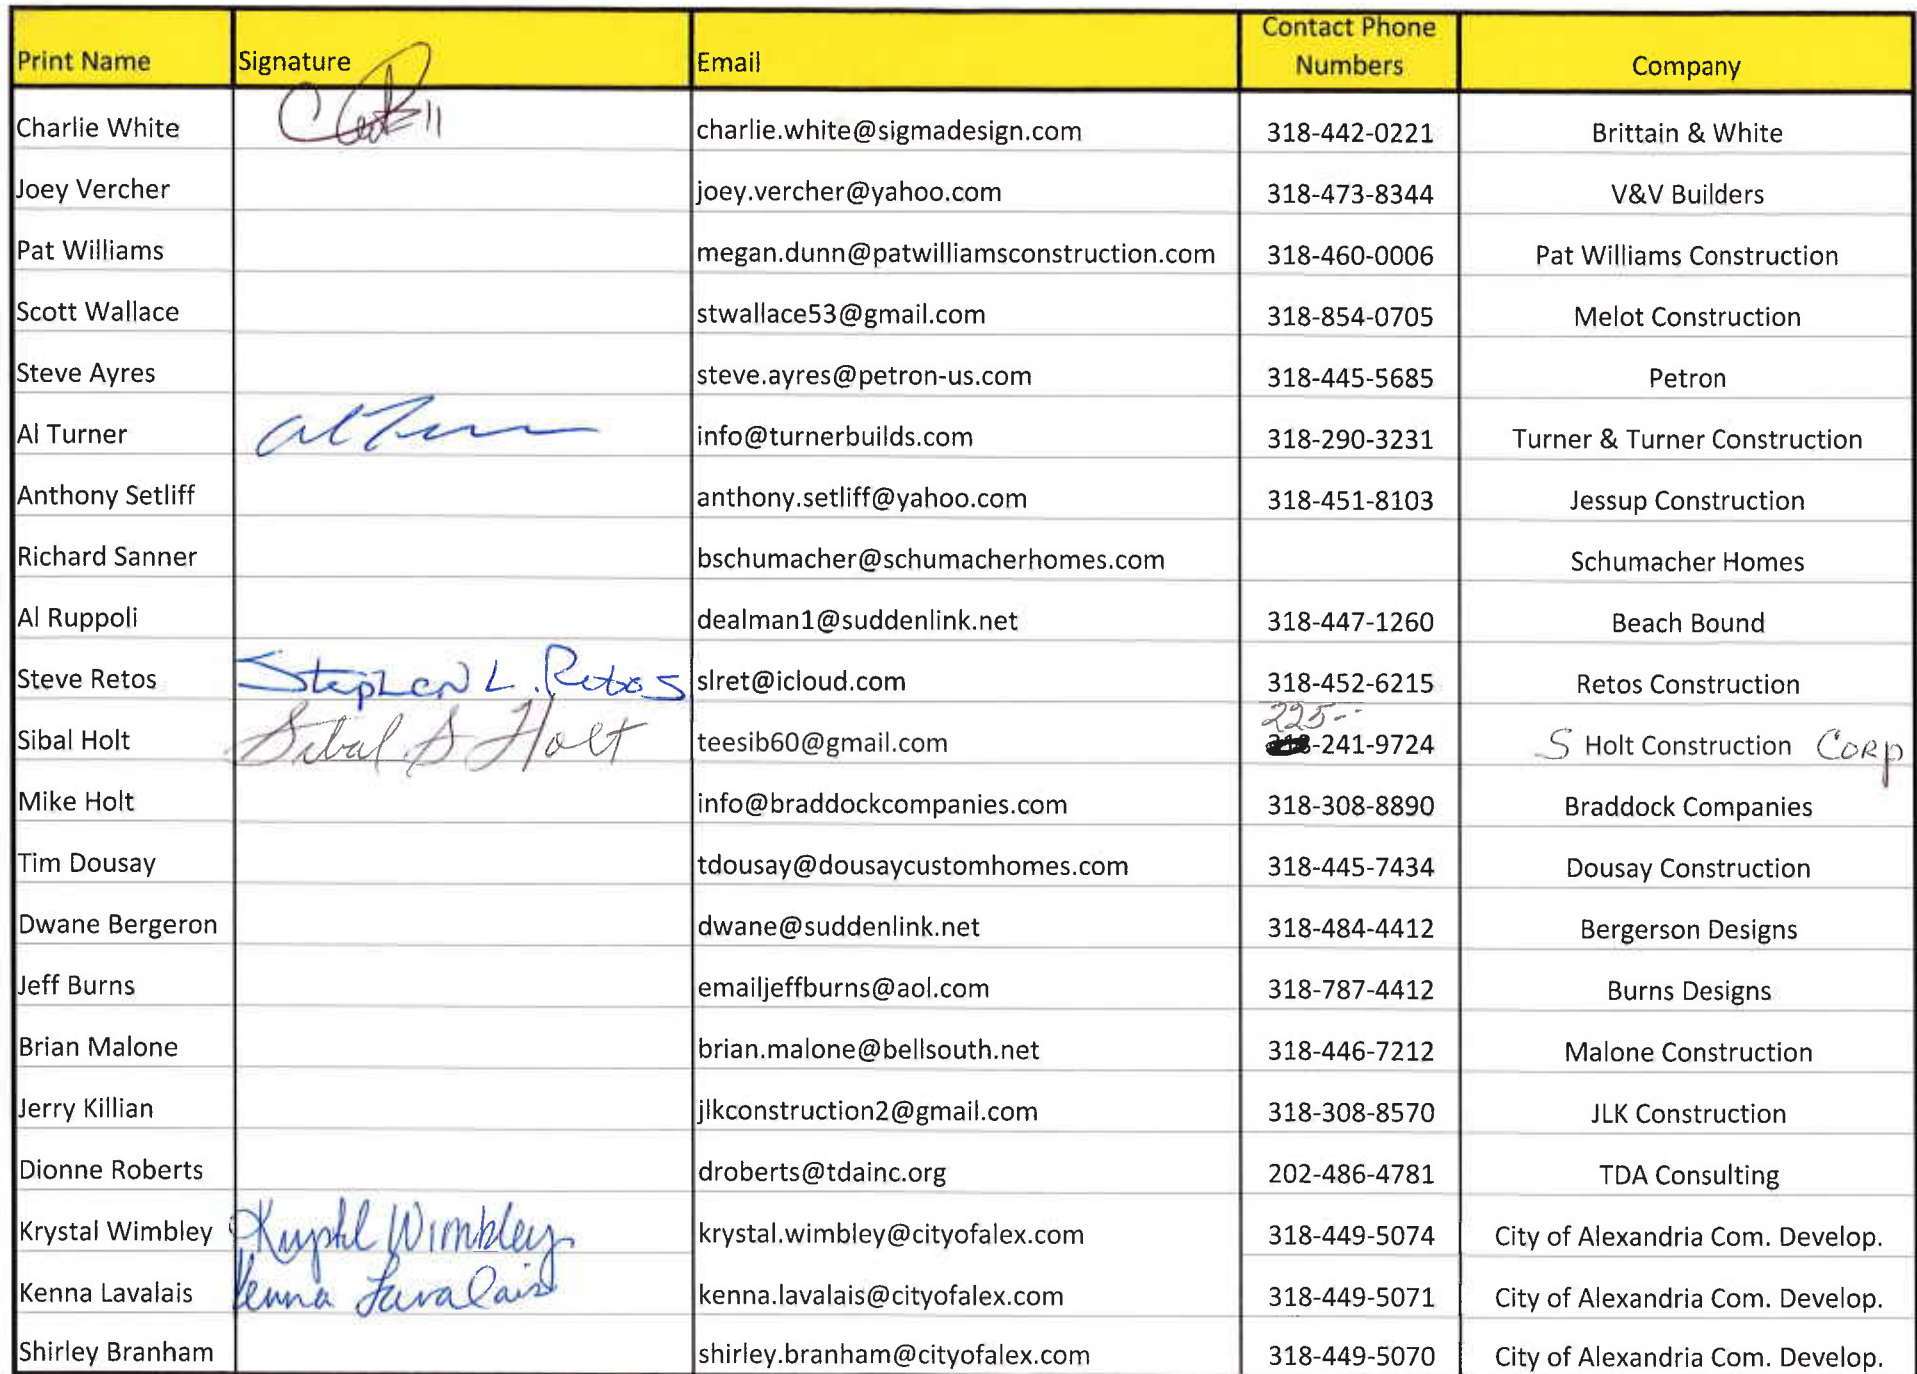 Print Name Signature Email Contact Phone Numbers Company
Charlie White charlie.white@sigmadesign.com 318-442-0221 Brittain & White
Joey Vercher joey.vercher@yahoo.com 318-473-8344 V&V Builders
Pat Williams megan.dunn@patwilliamsconstruction.com 318-460-0006 Pat Williams Construction
Scott Wallace stwallace53@gmail.com 318-854-0705 Melot Construction
Steve Ayres steve.ayres@petron-us.com 318-445-5685 Petron
Al Turner Al Turner info@turnerbuilds.com 318-290-3231 Turner & Turner Construction
Anthony Setliff anthony.setliff@yahoo.com 318-451-8103 Jessup Construction
Richard Sanner bschumacher@schumacherhomes.com Schumacher Homes
Al Ruppoli dealman1@suddenlink.net 318-447-1260 Beach Bound
Steve Retos Stephen L. Retos slret@icloud.com 318-452-6215 Retos Construction
Sibal Holt Sibal S Holt teesib60@gmail.com 225- -241-9724 S Holt Construction Corp
Mike Holt info@braddockcompanies.com 318-308-8890 Braddock Companies
Tim Dousay tdousay@dousaycustomhomes.com 318-445-7434 Dousay Construction
Dwane Bergeron dwane@suddenlink.net 318-484-4412 Bergerson Designs
Jeff Burns emailjeffburns@aol.com 318-787-4412 Burns Designs
Brian Malone brian.malone@bellsouth.net 318-446-7212 Malone Construction
Jerry Killian jlkconstruction2@gmail.com 318-308-8570 JLK Construction
Dionne Roberts droberts@tdainc.org 202-486-4781 TDA Consulting
Krystal Wimbley Krystal Wimbley krystal.wimbley@cityofalex.com 318-449-5074 City of Alexandria Com. Develop.
Kenna Lavalais Kenna Lavalais kenna.lavalais@cityofalex.com 318-449-5071 City of Alexandria Com. Develop.
Shirley Branham shirley.branham@cityofalex.com 318-449-5070 City of Alexandria Com. Develop.